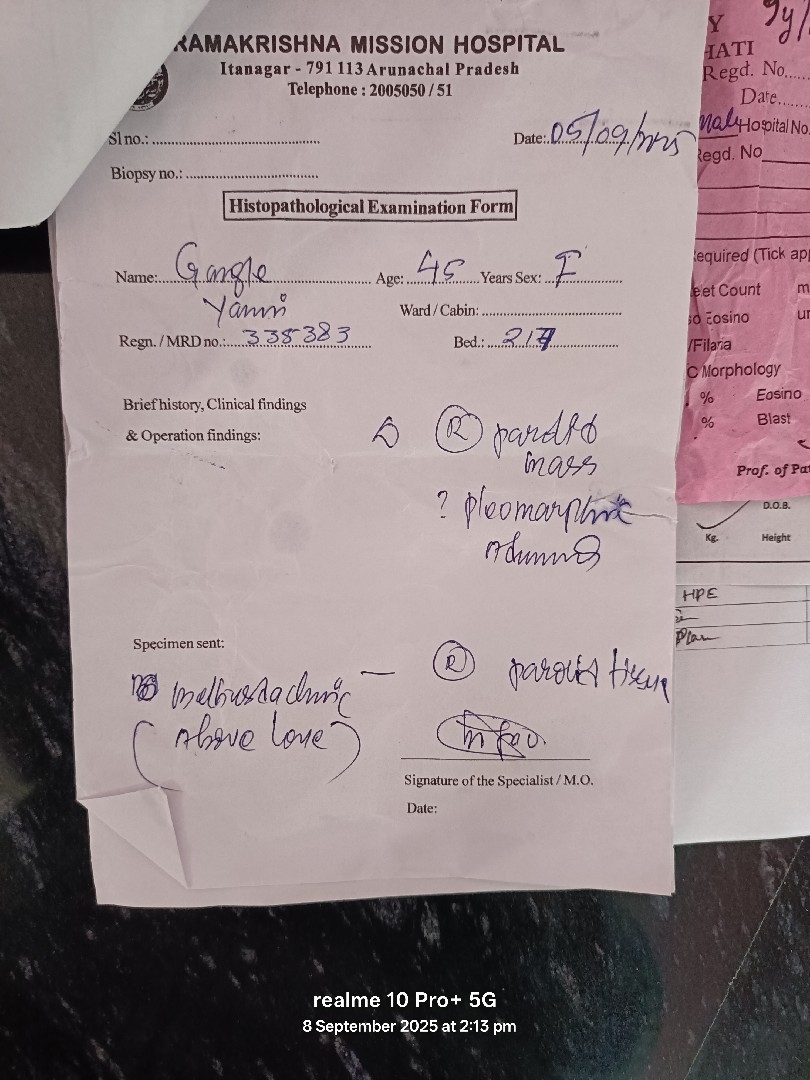 RAMAKRISHNA MISSION HOSPITAL
Itanagar - 791 113 Arunachal Pradesh
Telephone : 2005050 / 51
Sl no.:
Date: 05/09/
Biopsy no.:
Histopathological Examination Form
Name: Age: 45 Years Sex: F
Ward / Cabin:
Regn. / MRD no.: 335383 Bed.: 217
Brief history, Clinical findings
& Operation findings: (R) parotid
mass
? pleomorphic
Specimen sent:
(R) parotid tissue
(Above
Signature of the Specialist / M.O.
Date:
Y
HATI
Regd. No.
Date
Hospital No.
Regd. No
equired (Tick
eet Count
Eosino
/Filaria
C Morphology
% Eosino
% Blast
Prof. of
D.O.B.
Kg. Height
HPE
Plan
realme 10 Pro+ 5G
8 September 2025 at 2:13 pm